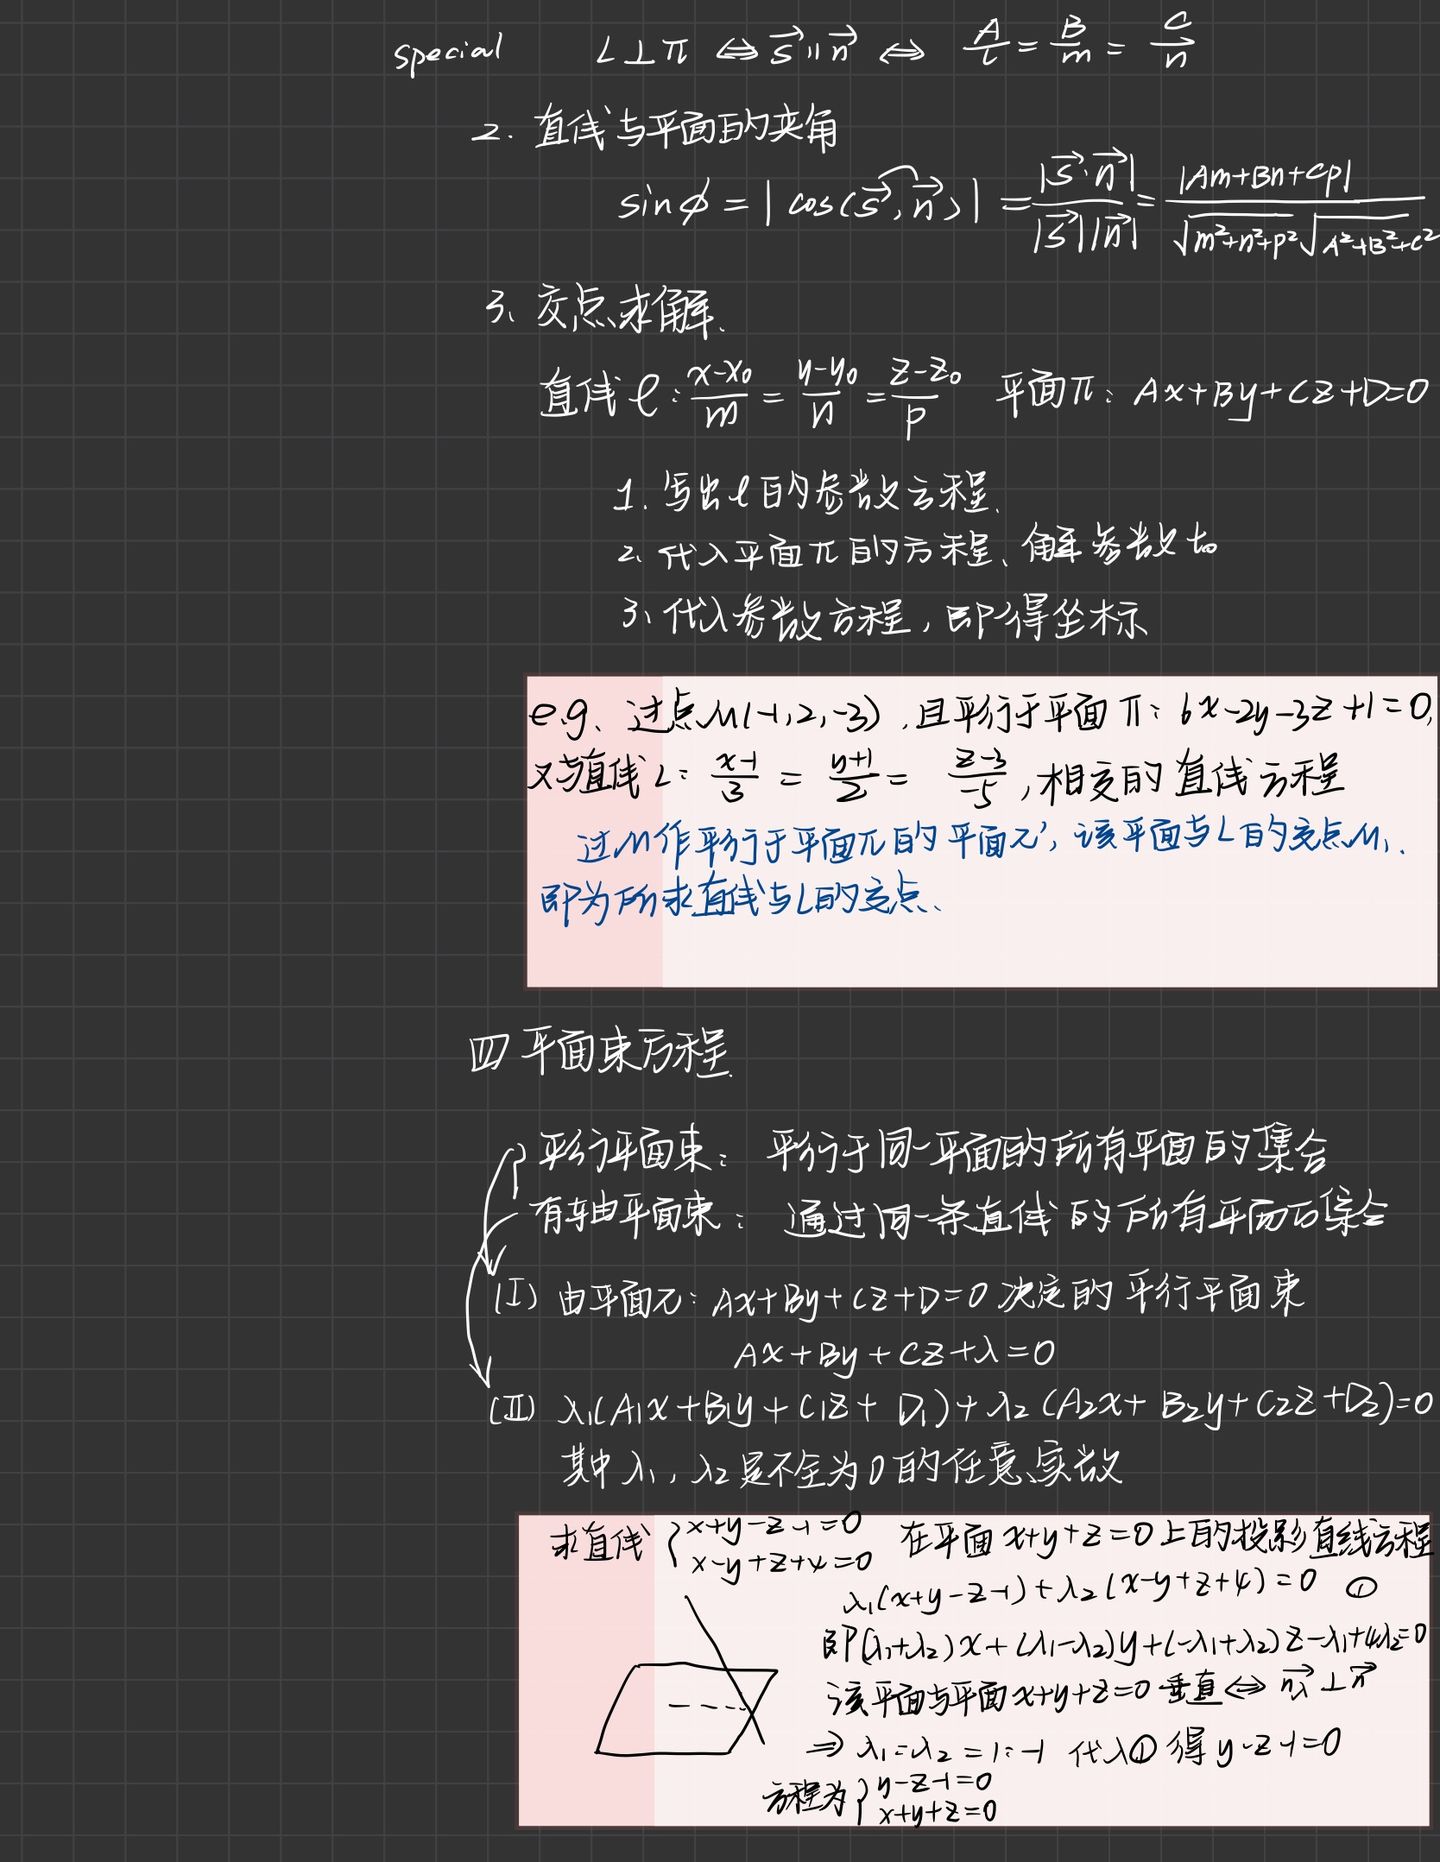 special L⊥π ⇔ s⃗ ∥ n⃗ ⇔ A/l = B/m = C/n
2. 直线与平面的夹角
sinϕ = |cos(s⃗,n⃗)| = |s⃗·n⃗| / |s⃗||n⃗| = |Am+Bn+Cp| / √m²+n²+p² √A²+B²+C²
3、交点求解.
直线ℓ: x-x₀/m = y-y₀/n = z-z₀/p 平面π: Ax+By+Cz+D=0
1. 写出ℓ的参数方程.
2. 代入平面π的方程、解参数t₀
3、代入参数方程,即得坐标
e.g. 过点M(-1,2,-3),且平行于平面π: 6x-2y-3z+1=0,
又与直线L: x-1/3 = y+1/2 = z-3/-5,相交的直线方程
过M作平行于平面π的平面π',该平面与L的交点M₁.
即为所求直线与L的交点、
四 平面束方程.
平行平面束: 平行于同一平面的所有平面的集合
有轴平面束: 通过同一条直线的所有平面的集合
(I) 由平面π: Ax+By+Cz+D=0决定的平行平面束
Ax+By+Cz+λ=0
(II) λ₁(A₁x+B₁y+C₁z+D₁)+λ₂(A₂x+B₂y+C₂z+D₂)=0
其中λ₁,λ₂是不全为0的任意实数
求直线 { x+y-z-1=0 在平面x+y+z=0上的投影直线方程
x-y+z+4=0
λ₁(x+y-z-1)+λ₂(x-y+z+4)=0 ①
即(λ₁+λ₂)x+(λ₁-λ₂)y+(-λ₁+λ₂)z-λ₁+4λ₂=0
该平面与平面x+y+z=0垂直 ⇔ n⃗λ⊥n⃗
⇒ λ₁:λ₂=1:-1 代入①得y-z-1=0
方程为 { y-z-1=0
x+y+z=0